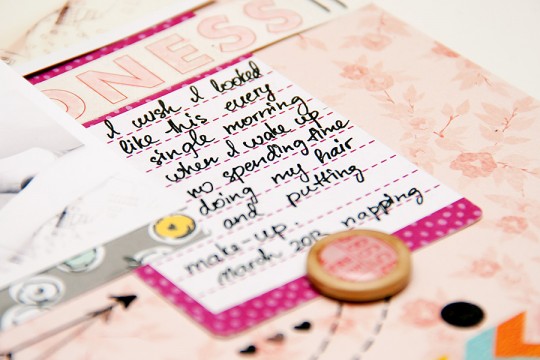 ONESS
I wish I looked
like this every
single morning
when I wake up
no spending time
doing my hair
and putting
make-up.
March 2013 napping